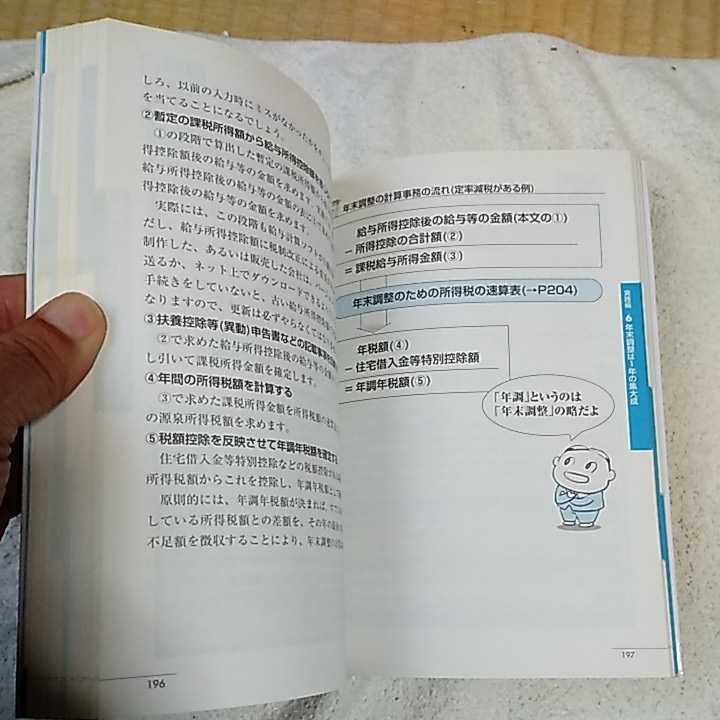 しろ、以前の入力時にミスがなかったか
を当てることになるでしょう。
②暫定の課税所得額から給与所得控除
①の段階で算出した暫定の課税所得
得控除額後の給与等の金額を求めます。
給与所得控除後の給与等の金額の表に
得控除後の給与等の金額を求めます。
実際には、この段階も給与計算ソフトが
だし、給与所得控除額に税制改正による
制作した、あるいは販売した会社が、
送るか、ネット上でダウンロードできる
手続きをしていないと、古い給与所得控除
なりますので、更新は必ずやらなくては
③扶養控除等(異動)申告書などの記載事項
②で求めた給与所得控除後の給与等の金
し引いて課税所得金額を確定します。
④年間の所得税額を計算する
③で求めた課税所得金額を所得税額の速算
の源泉所得税額を求めます。
⑤税額控除を反映させて年調年税額を確定する
住宅借入金等特別控除などの税額控除
所得税額からこれを控除し、年調年税額として
原則的には、年調年税額が決まれば、すで
している所得税額との差額を、その年の最後
不足額を徴収することにより、年末調整の
196
年末調整の計算事務の流れ(定率減税がある例)
給与所得控除後の給与等の金額(本文の①)
−所得控除の合計額(②)
＝課税給与所得金額(③)
年末調整のための所得税の速算表(→P204)
年税額(④)
−住宅借入金等特別控除額
＝年調年税額(⑤)
「年調」というのは
「年末調整」の略だよ
実践編 6 年末調整は1年の集大成
197